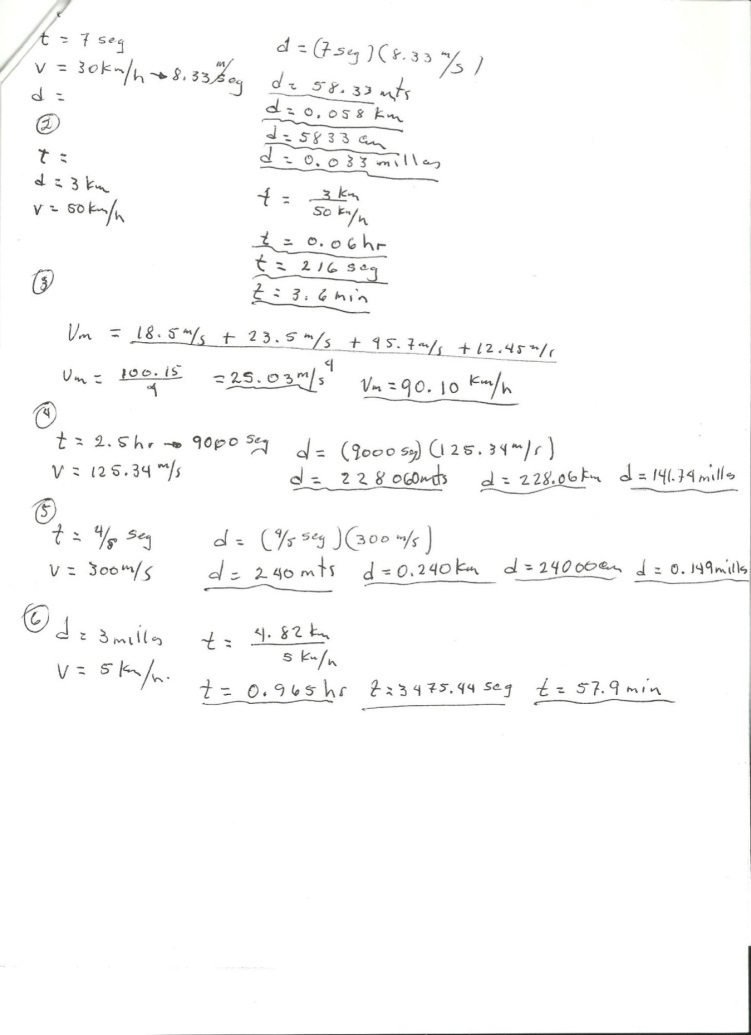 t = 7 seg
v = 30 km/h → 8.33 m/seg
d =
d = (7 seg) (8.33 m/s)
d = 58.33 mts
d = 0.058 km
d = 5833 cm
d = 0.033 millas
②
t =
d = 3 km
v = 50 km/h
t = 3 km / 50 km/h
t = 0.06 hr
t = 216 seg
t = 3.6 min
③
Vm = 18.5 m/s + 23.5 m/s + 45.7 m/s + 12.45 m/s
4
Vm = 100.15 / 4 = 25.03 m/s Vm = 90.10 km/h
④
t = 2.5 hr → 9000 seg d = (9000 sg) (125.34 m/s)
v = 125.34 m/s d = 228060 mts d = 228.06 km d = 141.74 millas
⑤
t = 4/5 seg d = (4/5 seg) (300 m/s)
v = 300 m/s d = 240 mts d = 0.240 km d = 24000 cm d = 0.149 millas
⑥
d = 3 millas t = 4.82 km / 5 km/h
v = 5 km/h.
t = 0.965 hs t = 3475.44 seg t = 57.9 min